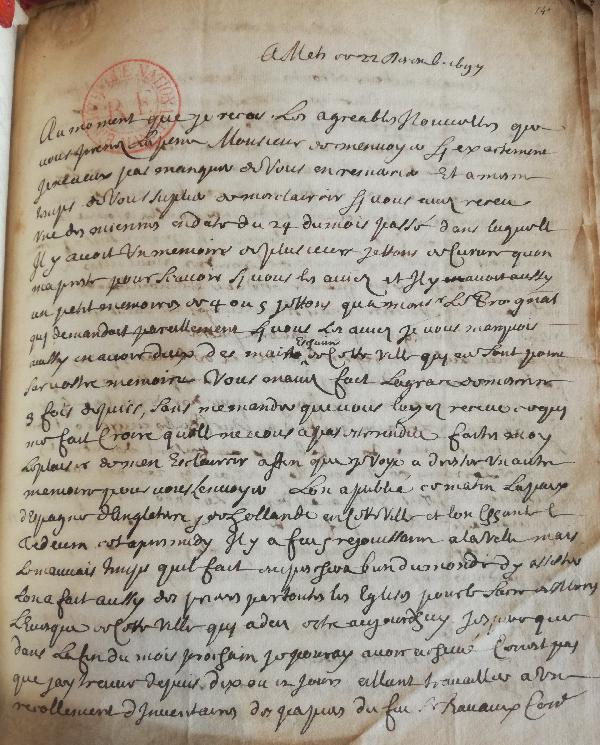 14
A Metz ce 22 Decemb. 1697
Au moment que je recois les agreables Nouvelles que
vous prenez la peine Monsieur de menvoyer sy exactement
je ne veux pas manquer de Vous en remercier Et a mesme
temps de Vous suplier de mesclaircir sy vous avez receu
une des miennes en datte du 24 du mois passé dans laquelle
Il y avoit Un memoire de plusieurs jettons de Cuivre quon
ma preste pour scavoir sy vous les aviez et Il y en avoit aussy
un petit memoire de 4 ou 5 jettons qua monsr Le Brocquat
qui demandoit pareillement sy vous les aviez je vous marquois
aussy en avoir deux des maitre Eschevin de Cette Ville qui ne sont point
sur vostre memoire Vous mavez fait la grace de mescrire
3 fois depuis, sans me mander que vous layez receue ce qui
me fait Croire quelle ne vous a pas esté rendue faites moy
le plaisir de men Esclaircir affin que je Vous adresse un autre
memoire pour vous lenvoyer Lon a publié ce matin La paix
d'Espagne d'Angleterre & de hollande en Cette Ville et lon Chante le
Te deum cet apres midy Il y a feu & rejouissance a la Ville mais
le mauvais temps quil fait empeschera bien du monde dy assister
Lon a fait aussy des prieres par toutes les Eglises pour le Sacre de Monsr
L'Evesque de Cette Ville qui a deu estre aujourdhuy Jespere que
dans la fin du mois prochain je pouray avoir acheve Ce n'est pas
que jay treuve depuis dix ou 12 jours allant travailler a Un
recollement d'Inventaires des papiers du feu Sr Ravaux Conr